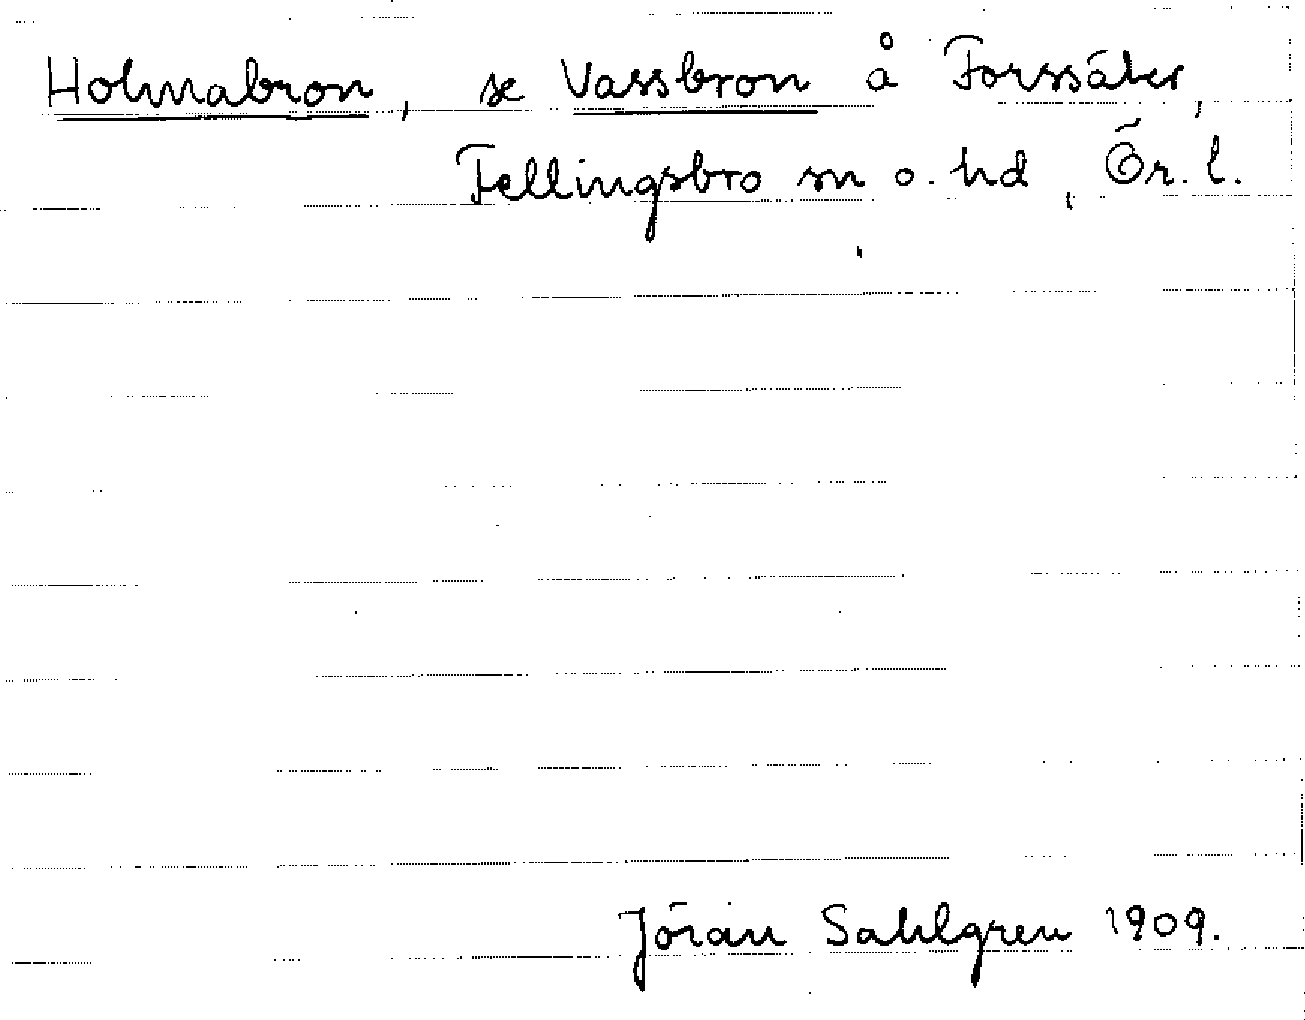 Holmabron, se Vassbron å Forssäter,
Fellingsbro sn o. hd, Ör. l.
Jöran Sahlgren 1909.